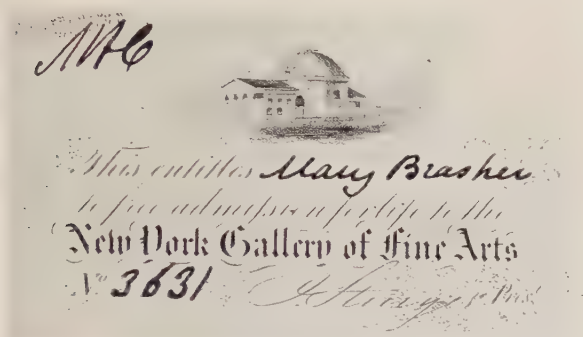 This entitles Mary Brasher
to free admission for life to the
New York Gallery of Fine Arts
No 3631 J Sturges Pres